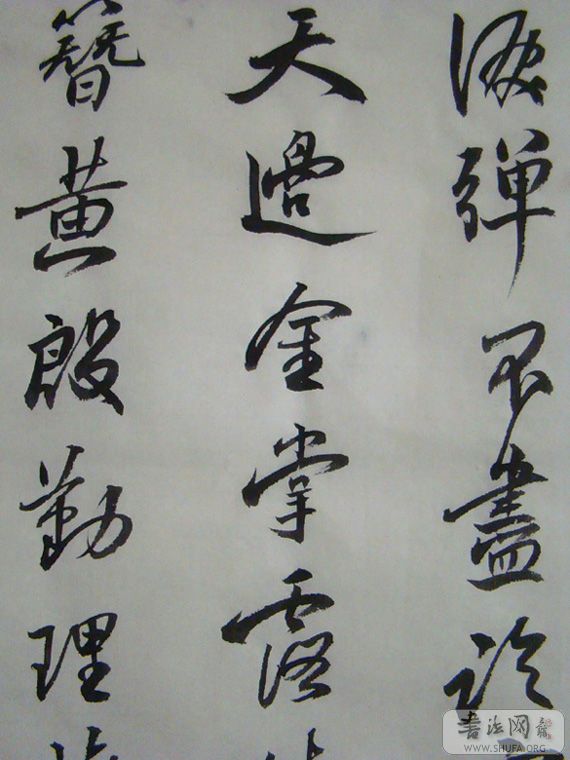 淚弹不盡临
天邊金掌露
簪黃殷勤理
書法网
WWW.SHUFA.ORG